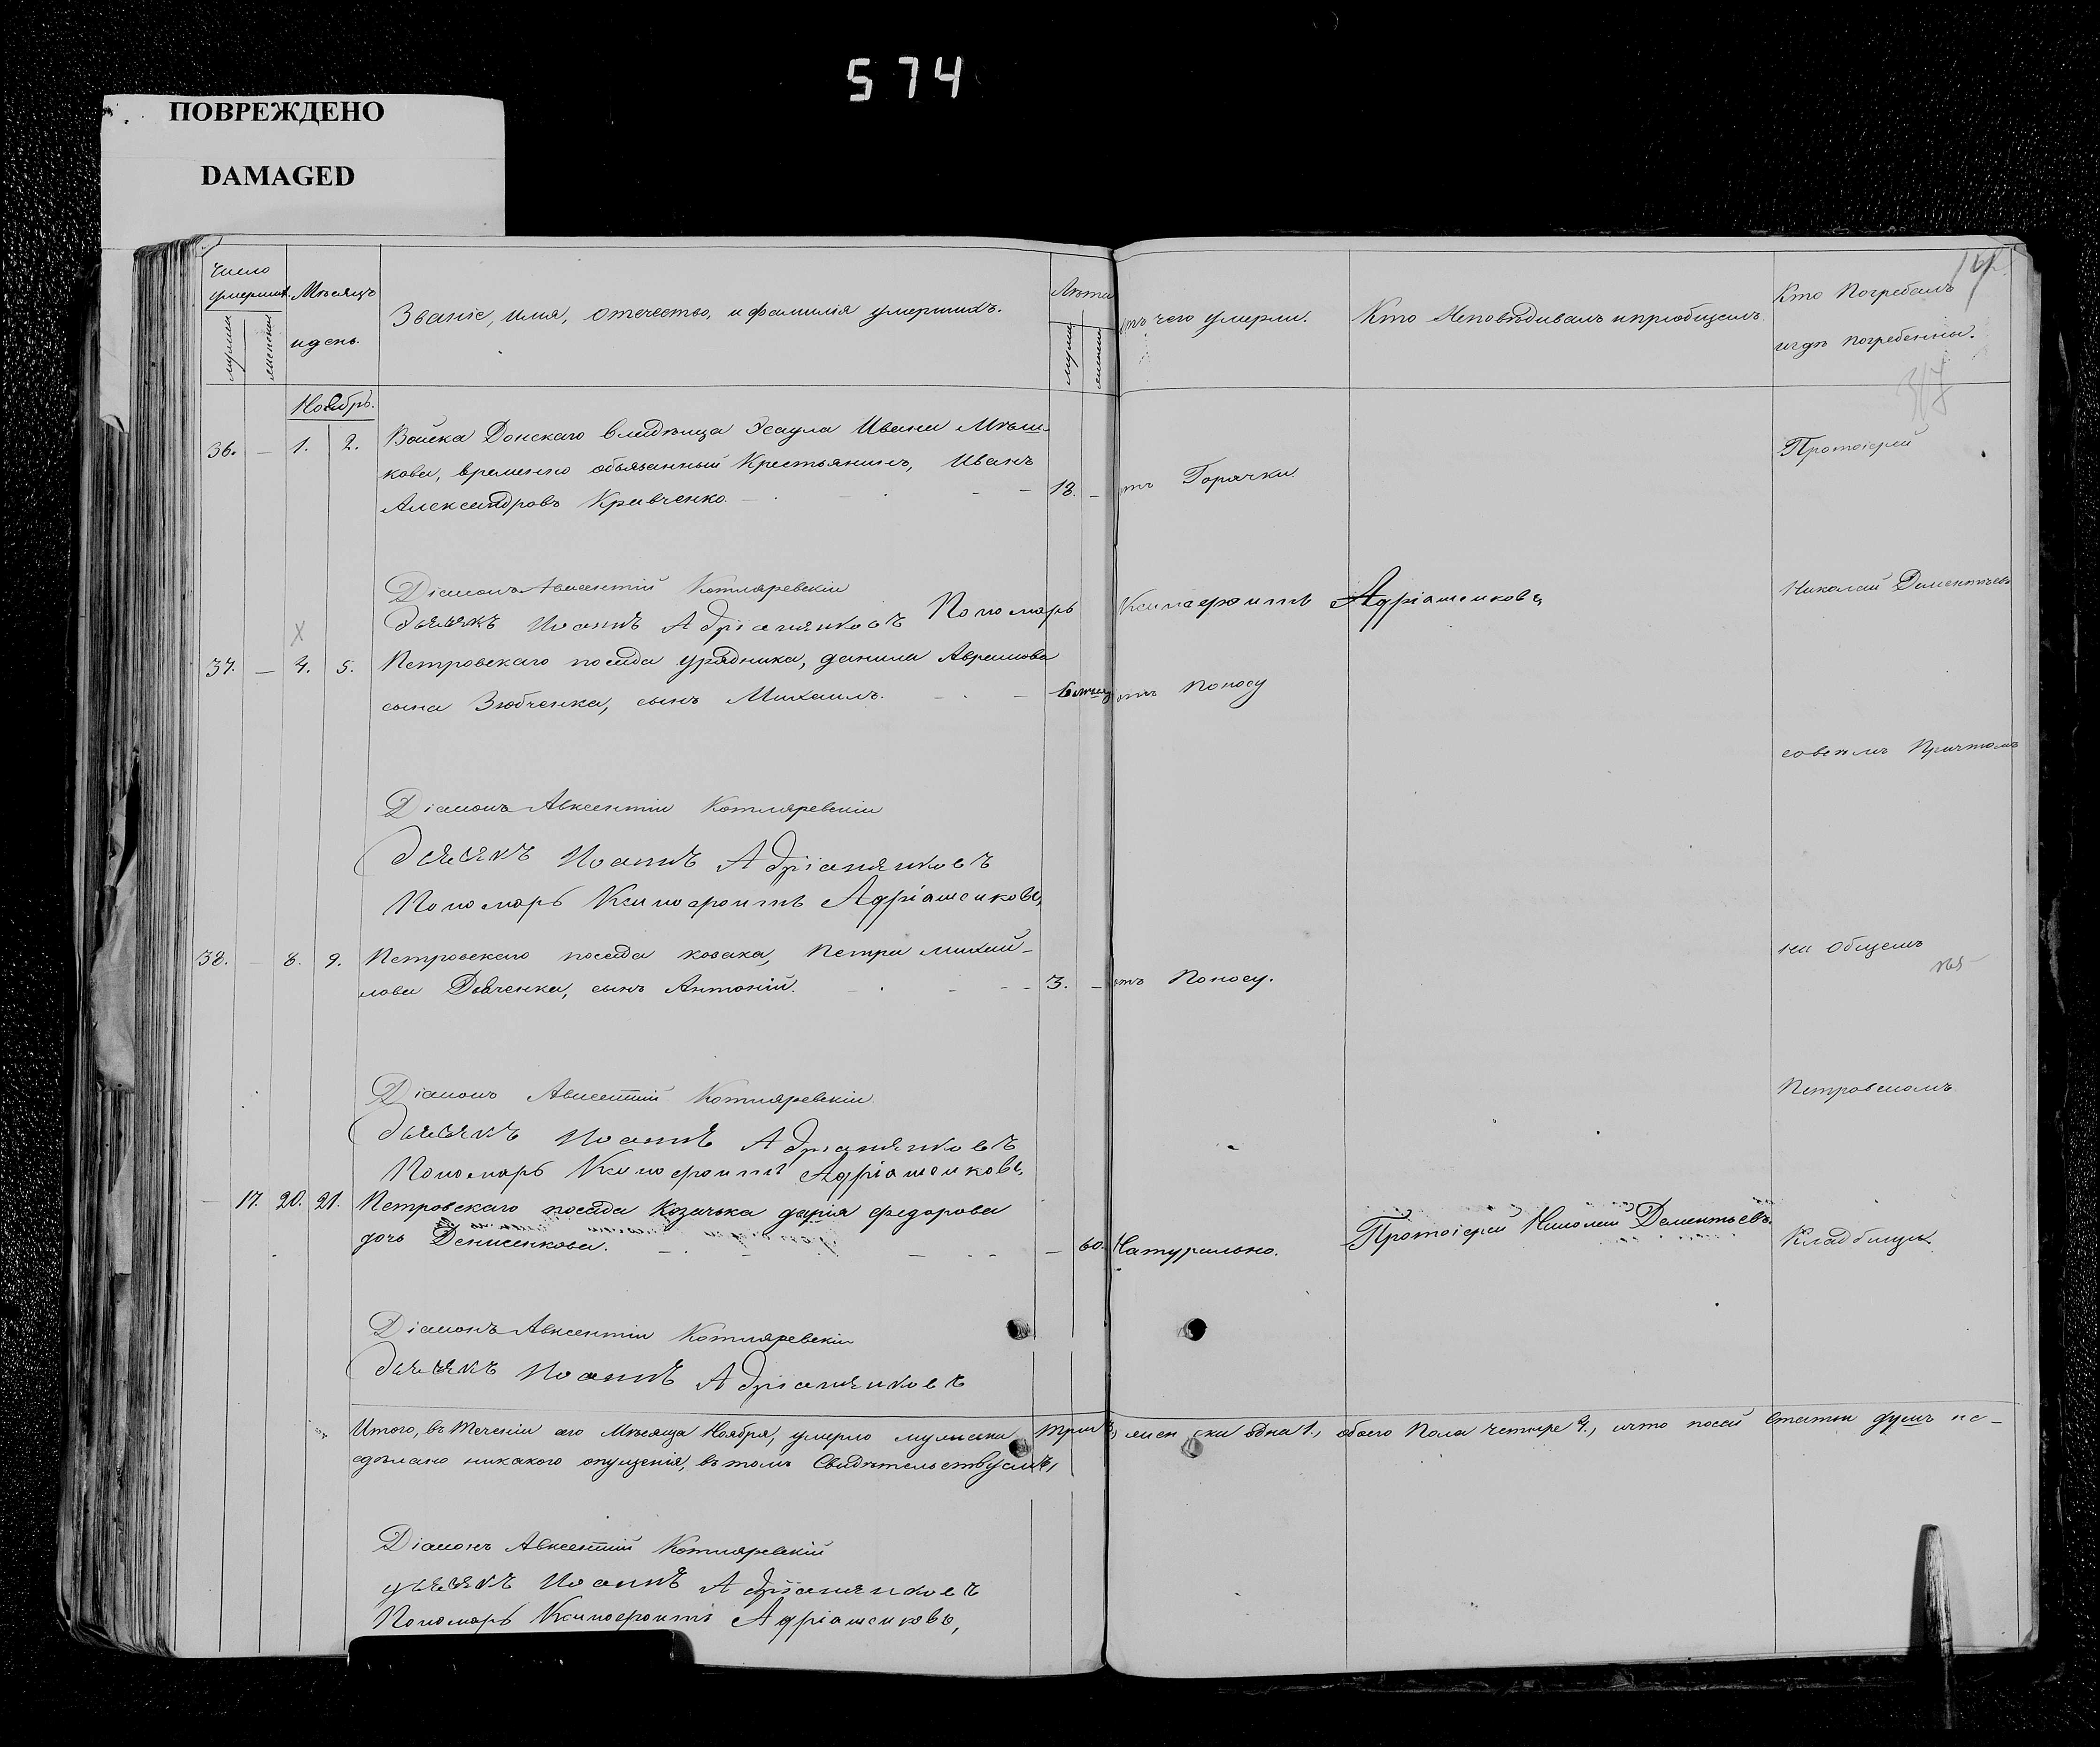 574
ПОВРЕЖДЕНО
DAMAGED
Число
умерших.
мужеск
женска
Мѣсяцъ
и день.
Званіе, имя, отечество, и фамилія умершихъ.
Лѣта
мужеск
женска
отъ чего умерли.
Кто Исповѣдивалъ и пріобщалъ.
Кто Погребалъ
и гдѣ погребенны.
Ноябрь.
36. — 1. 2. Войска Донскаго владѣльца Эсаула Ивана Мѣш-
кова, временно обязанный Крестьянинъ, Иванъ
Александровъ Кравченко. 18. — отъ Горячки.
Протоіерей
Діаконъ Авксентій Котляревскій
Дьячекъ Иоаннъ Адріаненковъ Пономарь Ксенофонтъ Адріашенковъ
Николай Дементьевъ
X
37. — 4. 5. Петровскаго посада урядника, данила Аврамова
сына Зюбченка, сынъ Михаилъ. 6 мѣсяц отъ Поносу
со всемъ Причтомъ
Діаконъ Авксентій Котляревскій
Дьячекъ Иоаннъ Адріаненковъ
Пономарь Ксенофонтъ Адріашенковъ
38. — 8. 9. Петровскаго посада козака, Петра михай-
лова Дьяченка, сынъ Антоній. 3. — отъ Поносу.
на Общемъ
Діаконъ Авксентій Котляревскій
Дьячекъ Иоаннъ Адріаненковъ
Пономарь Ксенофонтъ Адріашенковъ
Петровскомъ
— 17. 20. 21. Петровскаго посада Козачька дарія федорова
дочь Денисенкова. — 60. Натурально. Протоіерей Николай Дементьевъ.
Кладбищѣ
Діаконъ Авксентій Котляревскій
Дьячекъ Иоаннъ Адріаненковъ
Итого, въ теченіи сего Мѣсяца Ноября, умерло мужеска три 3, женска одна 1., обоего Пола четыре 4., и что посей Статьи душъ не-
сдѣлано никакого опущенія, въ томъ Свидѣтельствуемъ,
Діаконъ Авксентій Котляревскій
Дьячекъ Иоаннъ Адріаненковъ
Пономарь Ксенофонтъ Адріашенковъ,